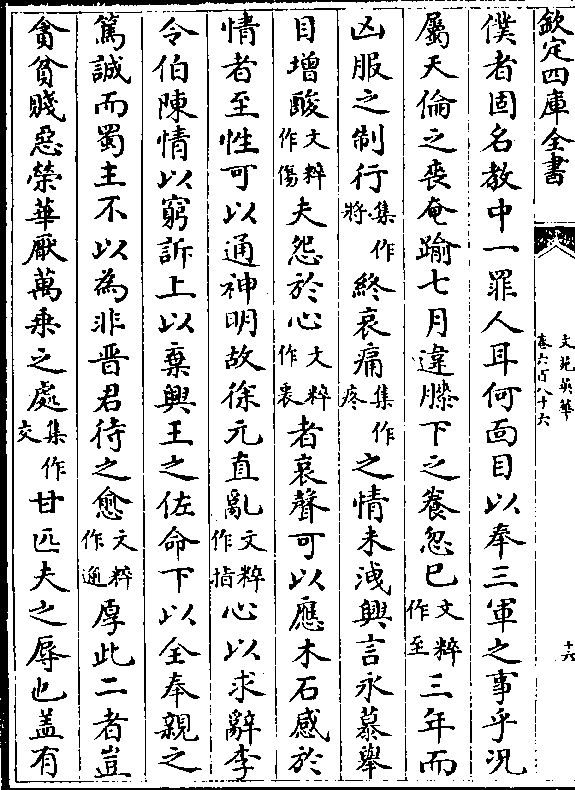 欽定四庫全書
文苑英華
卷六百八十六
十六
僕者固名教中一罪人耳何面目以奉三軍之事乎況
屬天倫之喪奄踰七月違膝下之養忽已文粹作至三年而
凶服之制行集作將終哀痛集作疼之情未洩興言永慕舉
目增酸文粹作傷夫怨於心文粹作衷者哀聲可以應木石感於
情者至性可以通神明故徐元直亂文粹作指心以求辭李
令伯陳情以窮訴上以棄興王之佐命下以全奉親之
篤誠而蜀主不以為非晋君待之愈文粹作逾厚此二者豈
貪貧賤惡榮華厭萬乗之處集作交甘匹夫之辱也盖有